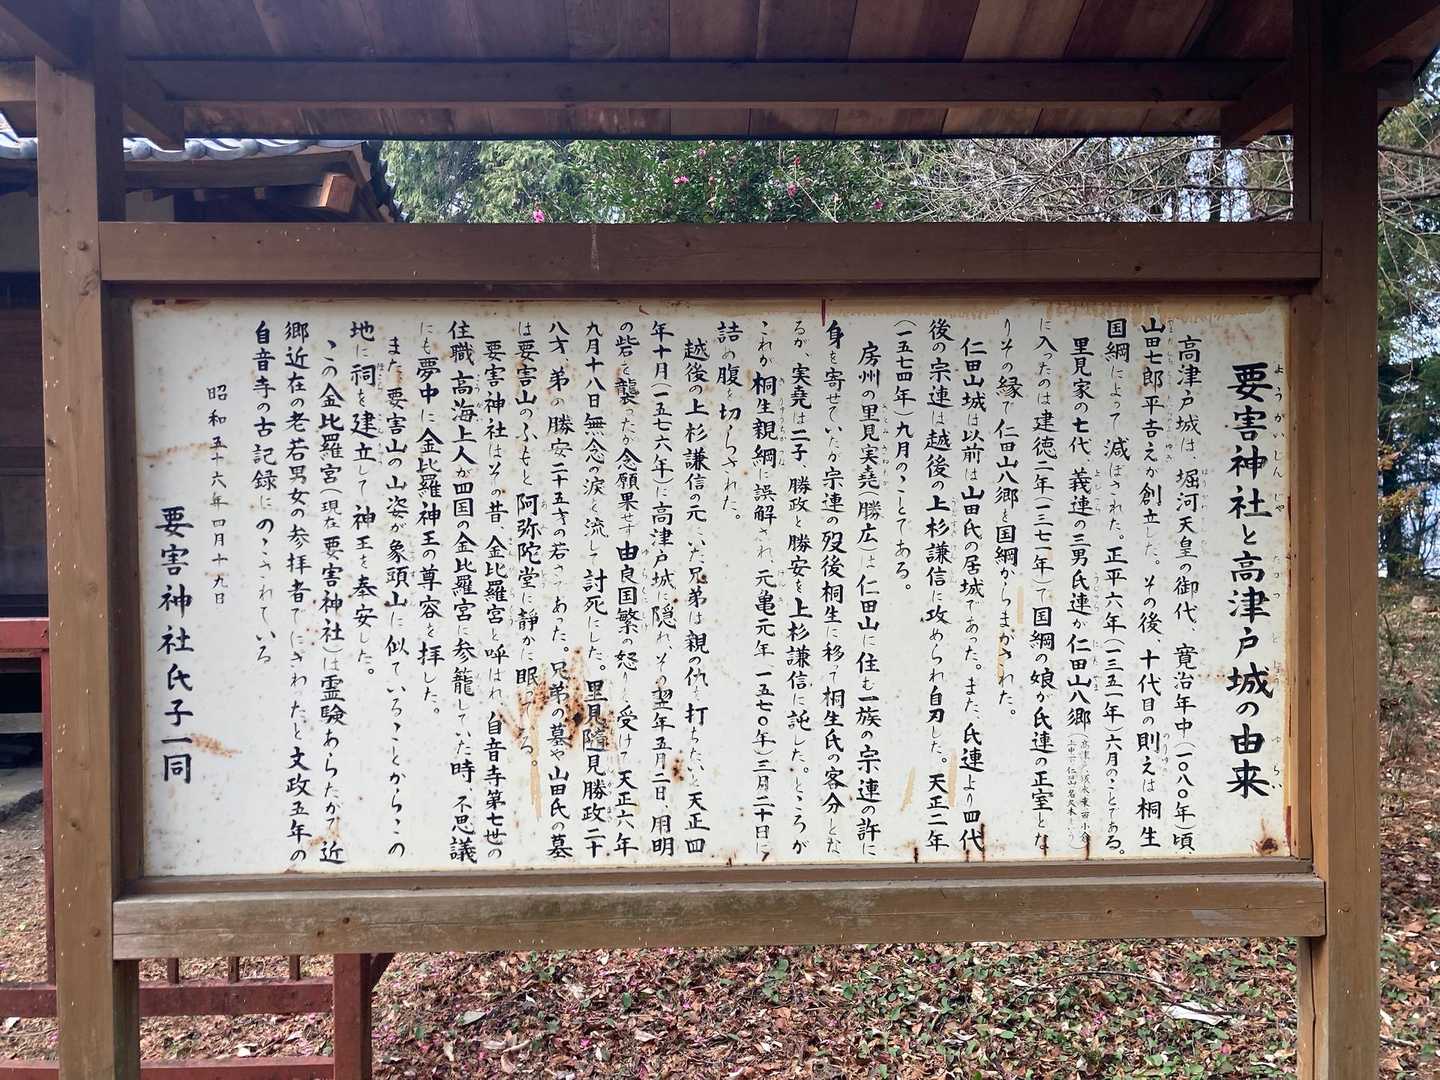 要害神社と高津戸城の由来
高津戸城は、堀河天皇の御代、寛治年中（一〇八〇年）頃、
山田七郎平吉之が創立した。その後、十代目の則之は桐生
国綱によって滅ぼされた。正平六年（一三五一年）六月のことである。
里見家の七代、義連の三男氏連が仁田山八郷
に入ったのは建徳二年（一三七一年）で国綱の娘が氏連の正室とな
りその縁で仁田山八郷を国綱からまかされた。
仁田山城は以前は山田氏の居城であった。また、氏連より四代
後の宗連は越後の上杉謙信に攻められ自刃した。天正二年
（一五七四年）九月のことである。
房州の里見実堯（勝広）は仁田山に住む一族の宗連の許に
身を寄せていたが宗連の歿後桐生に移って桐生氏の客分とな
るが、実堯は二子、勝政と勝安を上杉謙信に託した。ところが
これが桐生親綱に誤解され、元亀元年（一五七〇年）三月二十日に
詰め腹を切らされた。
越後の上杉謙信の元にいた兄弟は親の仇を打ちたいと天正四
年十月（一五七六年）に高津戸城に隠れ、その翌年五月二日、用明
の砦を襲ったが念願果せず由良国繁の怒りを受けて天正六年
九月十八日無念の涙を流して討死にした。里見随見勝政二十
八才、弟の勝安二十五才の若さであった。兄弟の墓や山田氏の墓
は要害山のふもと阿弥陀堂に静かに眠っている。
要害神社はその昔、金比羅宮と呼ばれ、自音寺第七世の
住職高海上人が四国の金比羅宮に参籠していた時、不思議
にも夢中に金比羅神王の尊容を拝した。
また、要害山の山姿が象頭山に似ていることからこの
地に祠を建立して神王を奉安した。
この金比羅宮（現在要害神社）は霊験あらたかで近
郷近在の老若男女の参拝者でにぎわったと文政五年の
自音寺の古記録にのこされている
昭和五十六年四月十九日
要害神社氏子一同